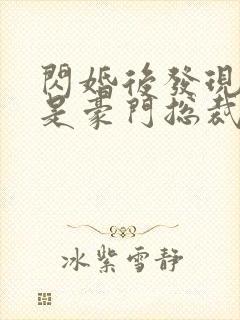 閃婚後發現
是豪門總裁
冰紫雪靜